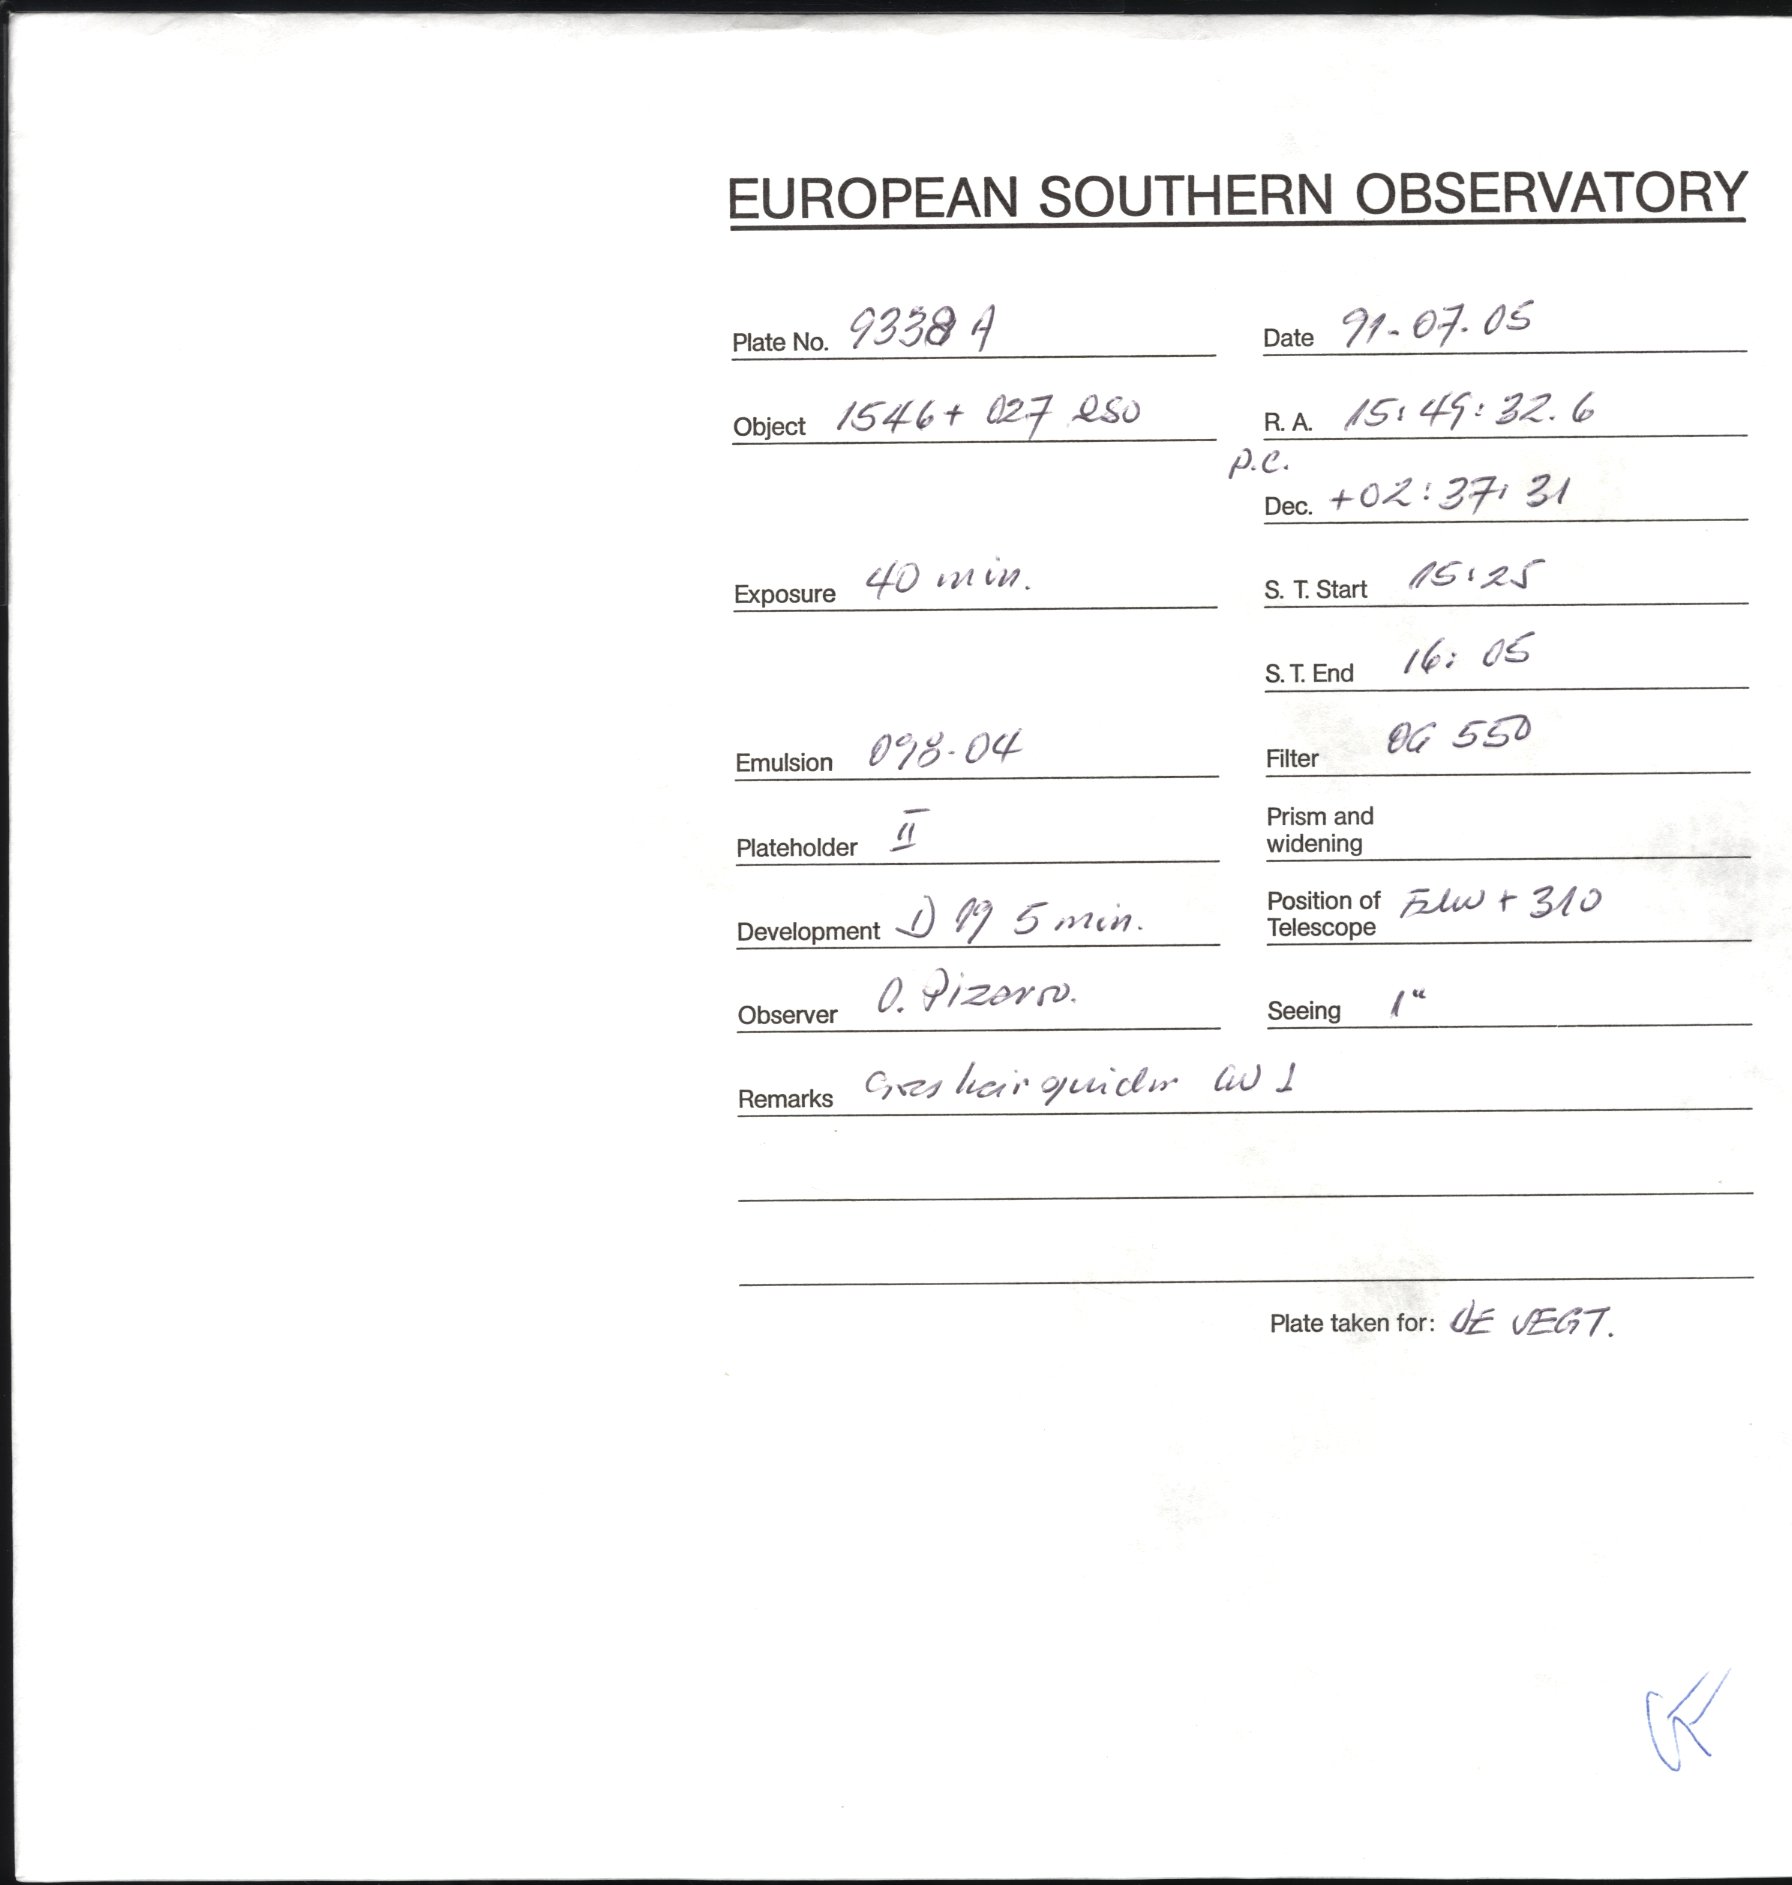 EUROPEAN SOUTHERN OBSERVATORY
Plate No. 9338 A Date 91-07-05
Object 1546+027 QSO R. A. 15:49:32.6
P.C.
Dec. +02:37:31
Exposure 40 min. S. T. Start 15:25
S. T. End 16:05
Emulsion 098-04 Filter OG 550
Plateholder II Prism and
widening
Development D 19 5 min. Position of
Telescope + 310
Observer O. Pizarro. Seeing 1"
Remarks guider
Plate taken for: DE VEGT.